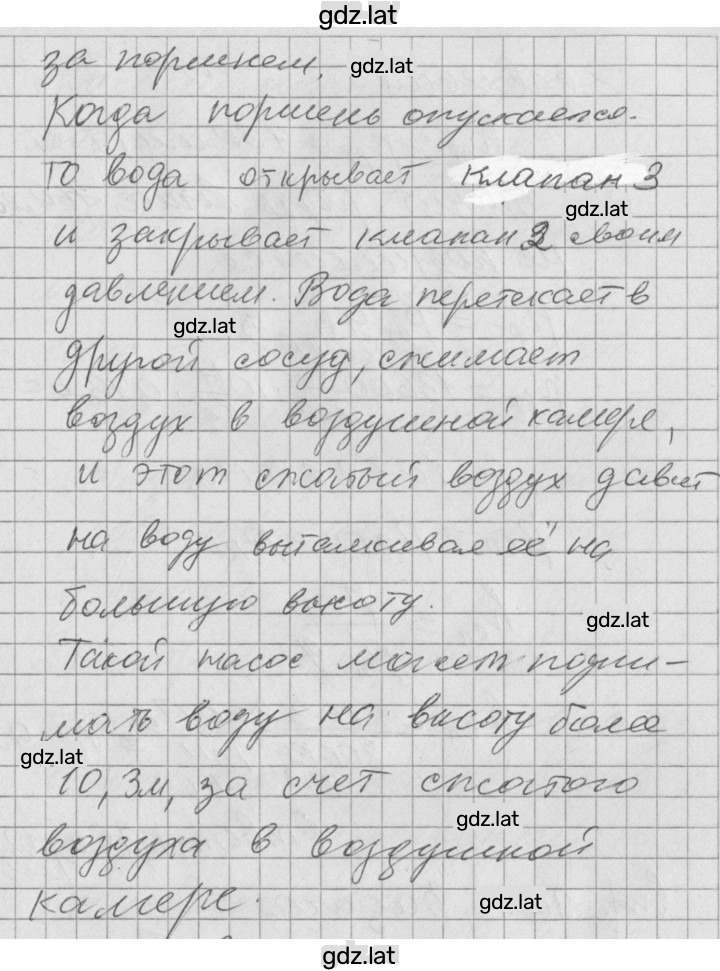 gdz.lat
за поршнем. gdz.lat
Когда поршень опускается.
то вода открывает клапан 3
gdz.lat
и закрывает клапан 2 своим
давлением. Вода перетекает в
gdz.lat
другой сосуд, сжимает
воздух в воздушной камере,
и этот сжатый воздух давит
на воду выталкивая её на
большую высоту.
gdz.lat
Такой насос может подни-
мать воду на высоту более
gdz.lat
10,3м, за счет сжатого
gdz.lat
воздуха в воздушной
камере.
gdz.lat
gdz.lat